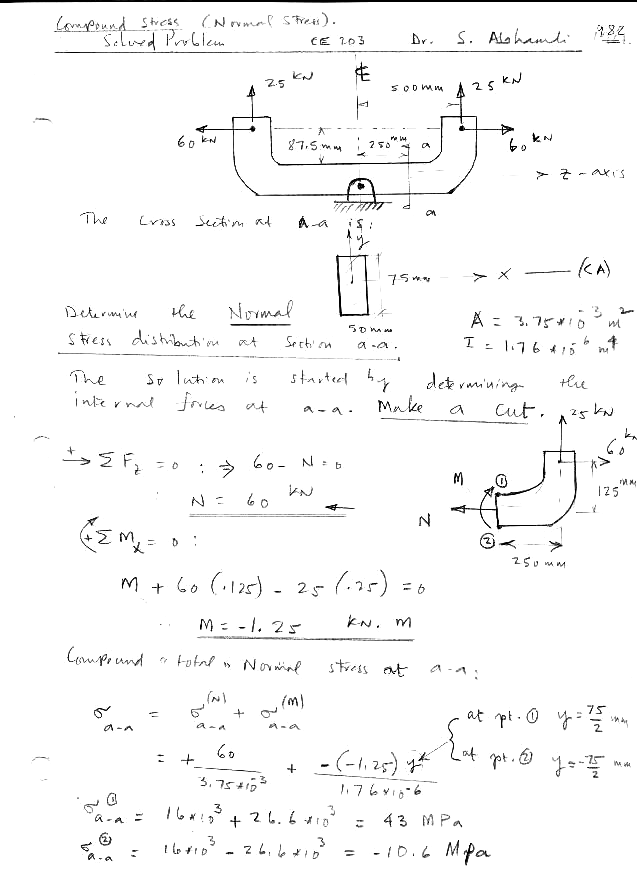 Compound Stress (Normal Stress).
Solved Problem CE 203 Dr. S. Alghamdi 982
25 kN ℄ 500mm 25 kN
60 kN 87.5 mm 250 mm a 60 kN
z-axis
a
The Cross Section at A-a is:
y
75 mm x (CA)
50 mm
Determine the Normal A = 3.75*10^-3 m^2
Stress distribution at Section a-a. I = 1.76*10^-6 m^4
The solution is started by determining the
internal forces at a-a. Make a cut. 25 kN
60 kN
M ① 125 mm
N
②
250 mm
+→ Σ F_z = 0 : ⇒ 60 - N = 0
N = 60 kN ←
+ Σ M_x = 0 :
M + 60 (.125) - 25 (.25) = 0
M = -1.25 kN. m
Compound "total" Normal stress at a-a:
σ_a-a = σ_a-a^(N) + σ_a-a^(M) at pt. ① y = 75/2 mm
= + 60/3.75*10^-3 + -(-1.25) y/1.76*10^-6 at pt. ② y = -75/2 mm
σ_a-a^① = 16*10^3 + 26.6*10^3 = 43 MPa
σ_a-a^② = 16*10^3 - 26.6*10^3 = -10.6 Mpa